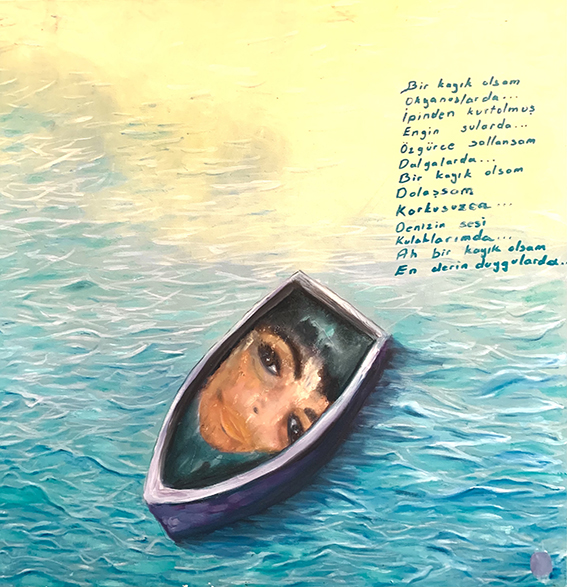 Bir kayık olsam
Okyanuslarda...
İpinden kurtolmuş
Engin sularda...
Özgürce sallansam
Dalgalarda...
Bir kayık olsam
Dolaşsam
Korkusuzca...
Denizin sesi
Kulaklarımda...
Ah bir kayık olsam
En derin duygularda..